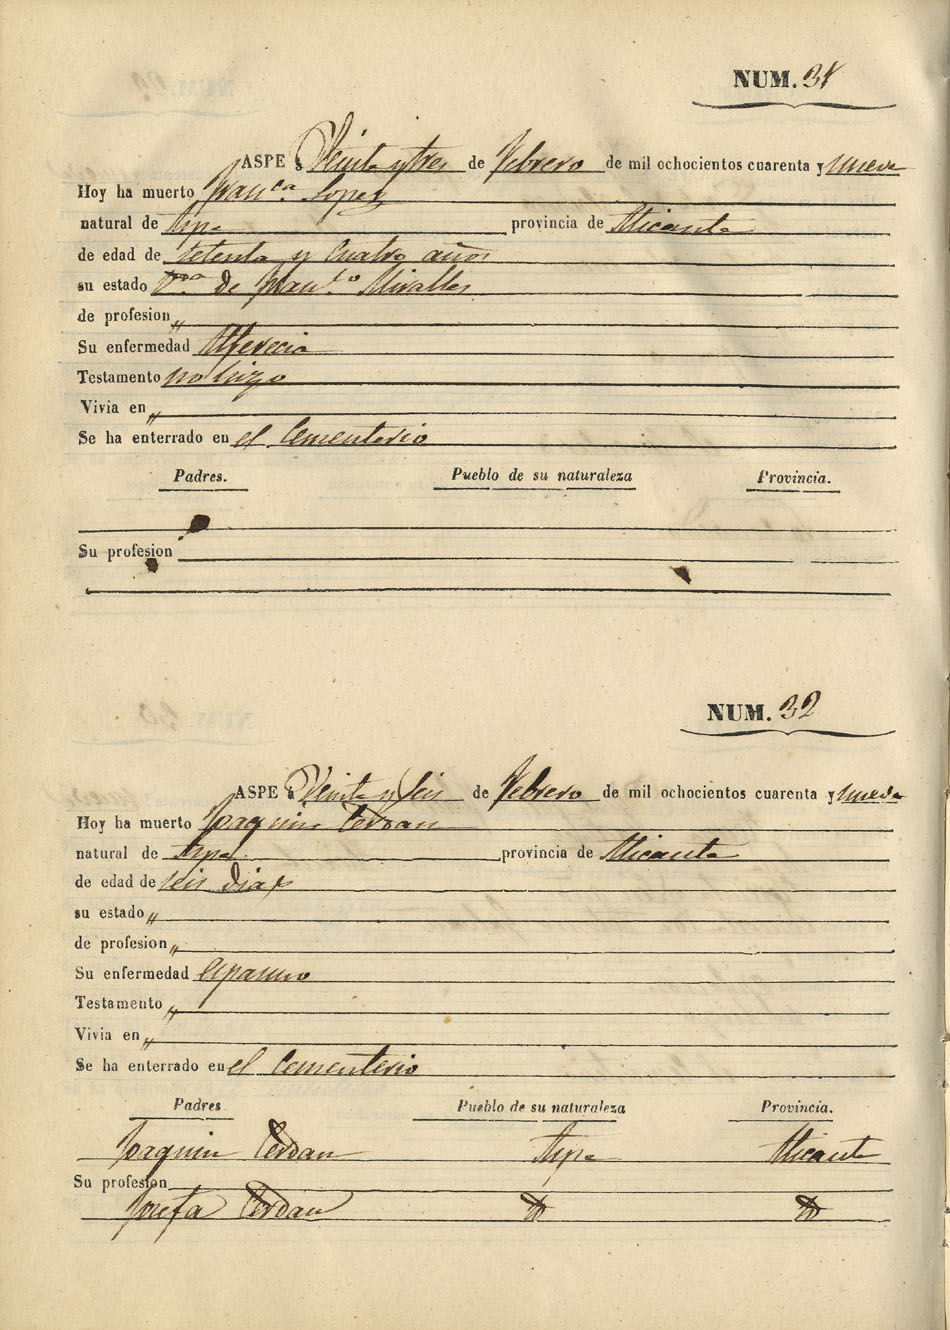 NUM. 31
ASPE á Veinte y tres de Febrero de mil ochocientos cuarenta y nueve
Hoy ha muerto Fran.ca Lopez
natural de Aspe provincia de Alicante
de edad de setenta y cuatro años
su estado V.da de Fran.co Miralles
de profesion „
Su enfermedad Alferecia
Testamento no hizo
Vivia en „
Se ha enterrado en el Cementerio
Padres. Pueblo de su naturaleza Provincia.
Su profesion
NUM. 32
ASPE á Veinte y seis de Febrero de mil ochocientos cuarenta y nueve
Hoy ha muerto Joaquin Cerdan
natural de Aspe provincia de Alicante
de edad de seis dias
su estado „
de profesion „
Su enfermedad espasmo
Testamento „
Vivia en „
Se ha enterrado en el Cementerio
Padres Pueblo de su naturaleza Provincia.
Joaquin Cerdan Aspe Alicante
Su profesion
Josefa Cerdan